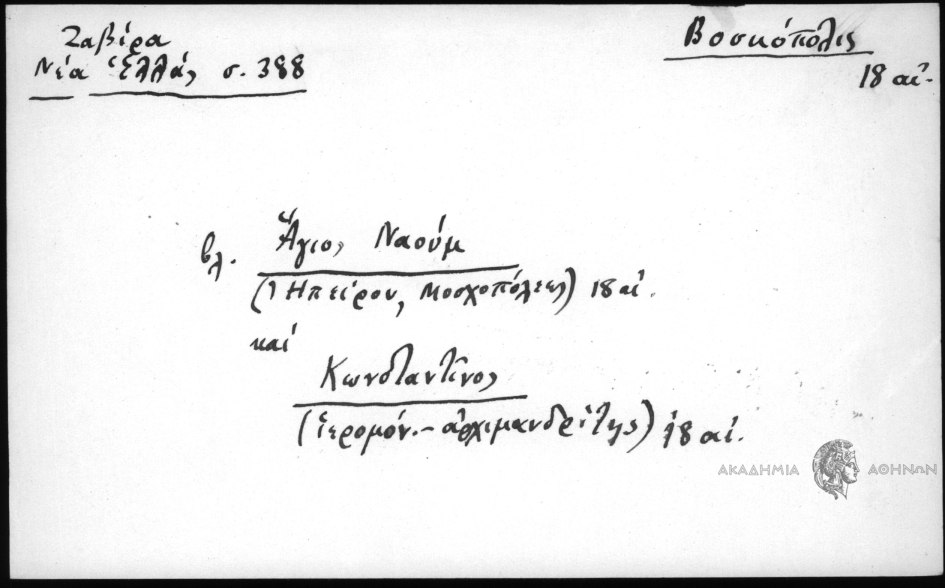 Ζαβίρα
Νέα Ἑλλάς σ. 388
Βοσκόπολις
18 αἰ.
βλ. Ἅγιος Ναούμ
(Ἠπείρου, Μοσχοπόλεως) 18 αἰ.
καί
Κωνσταντῖνος
(ἱερομόν. – ἀρχιμανδρίτης) 18 αἰ.
ΑΚΑΔΗΜΙΑ ΑΘΗΝΩΝ